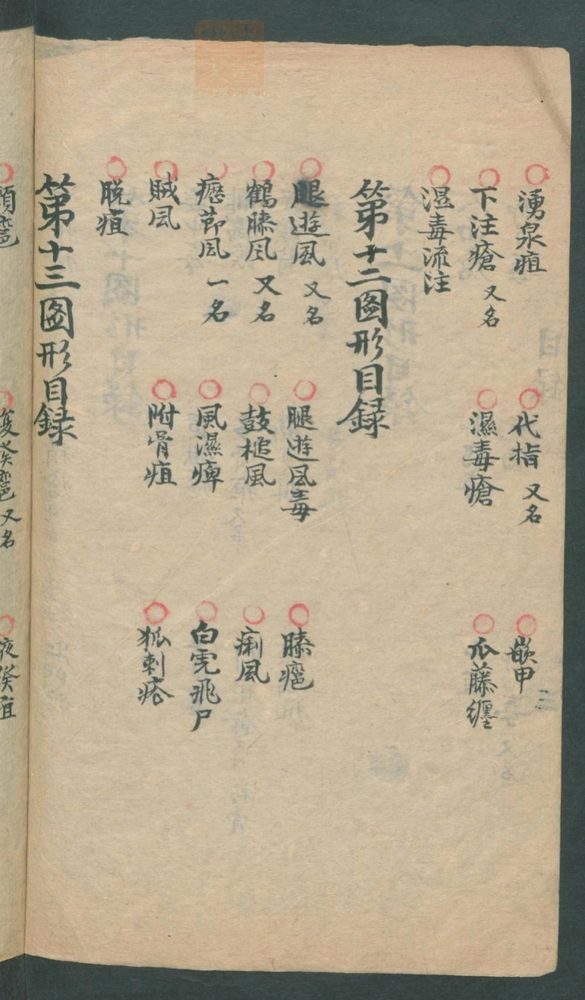 湧泉疽 代指 又名 嵌甲
下注瘡 又名 濕毒瘡 爪藤纏
湿毒流注
第十二圖形目録
腿遊風 又名 腿遊风毒 膝癰
鶴膝风 又名 鼓槌風 痢風
癧節风 一名 風濕痺 白虎飛尸
賊风 附骨疽 狐刺瘡
脱疽
第十三圖形目録
又名